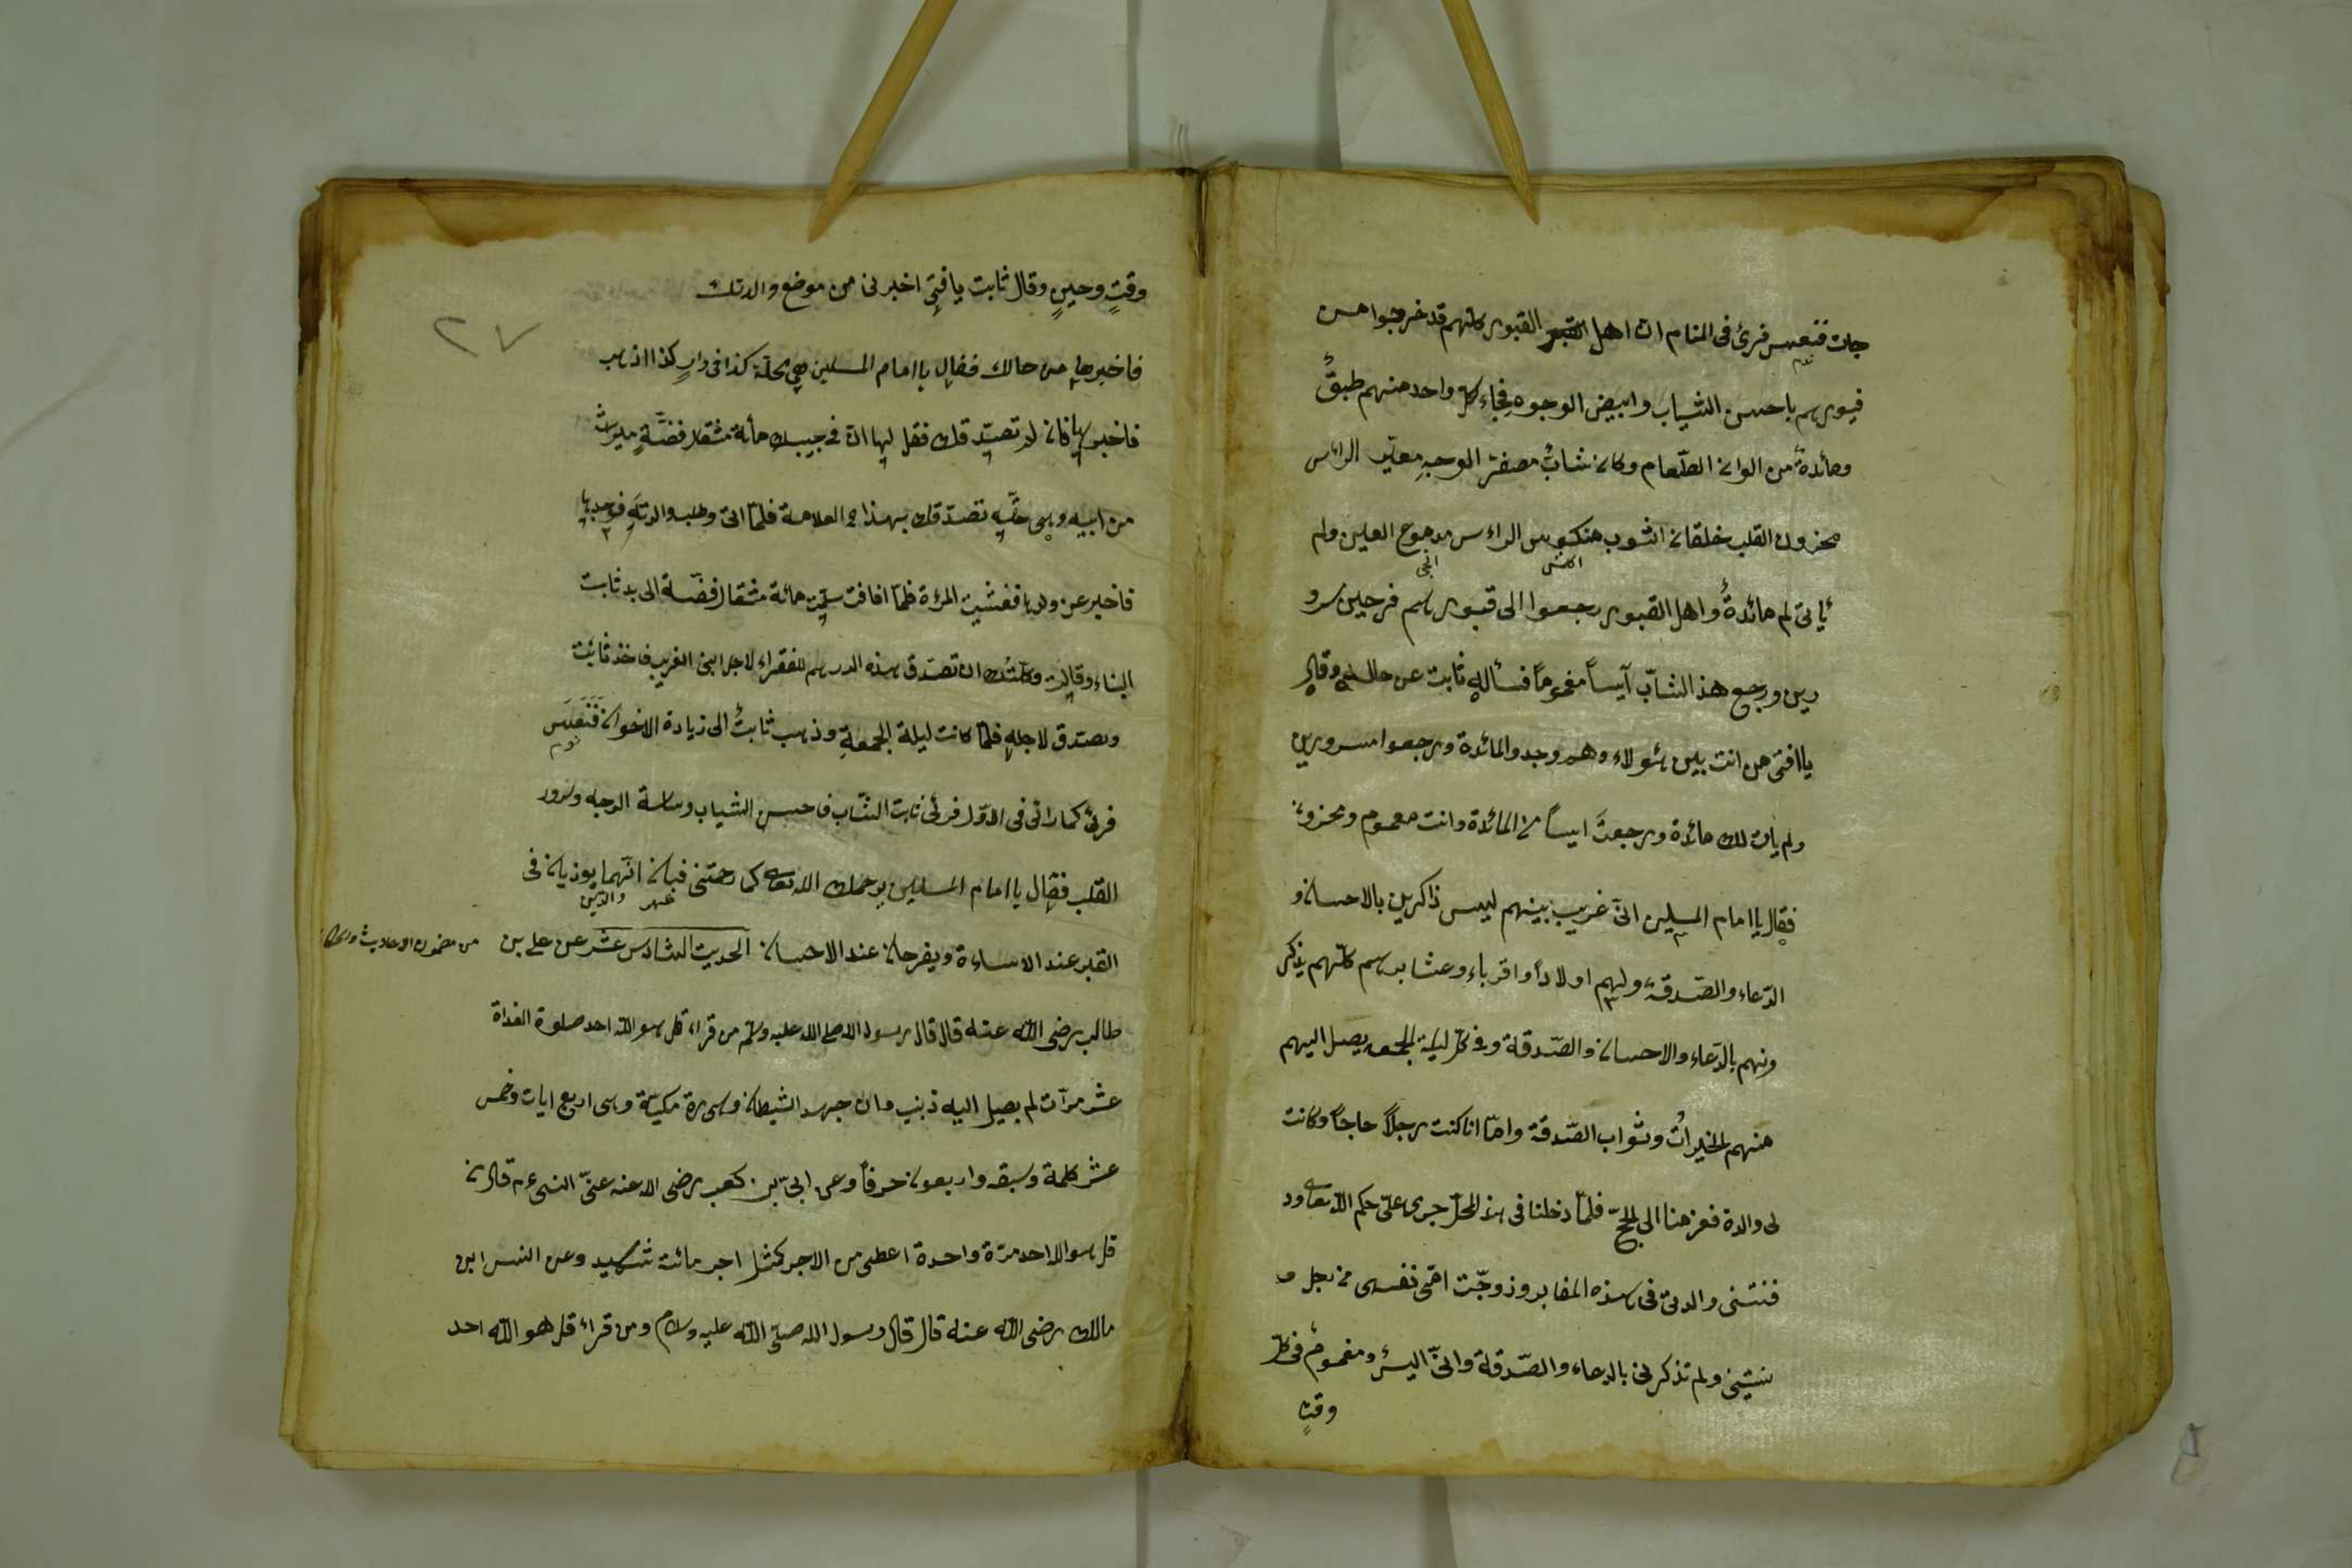 جات فنعس فرئ فى المنام ان اهل القبور كلهم قد خرجوا من
نوم
قبورهم باحسن الثياب وابيض الوجوه فجاء كل واحد منهم طبقٌ
ومائدةٌ من الوان الطّعام وكان شابٌ مصفرّ الوجهِ مغبّر الرأس
محزون القلب خلقان الثوب منكوس الراءس مدموع العين ولم
يأتى لم مائدةٌ واهل القبور رجعوا الى قبورهم فرحين مسرو
رين ورجع هذ الشابّ آيساً مغموماً فسأله ثابت عن حاله وقال
يافتى من انت بين هؤلاء وهم وجدوالمائدة ورجعوا مسرورين
ولم يات لك مائدة ورجعتَ ايساً من المائدة وانت مغموم ومحزون
فقال ياامام المسلمين انّى غريب بينهم ليس ذاكرين بالاحسان و
الدّعاء والصّدقة ولهم اولاداً واقرباء وعشايرهم كلّهم يذكر
ونهم بالدّعاء والاحسان والصّدقة وفى كل ليلة الجمعه يصل اليهم
منهم الخيراتُ وثواب الصّدقة وامّا انا كنت رجلاً حاجاً وكانت
لى والدة فعزمنا الى الحجّ فلمّا دخلنا فى هذ المحلّ جرى علىّ حكم اللّه تعالى ود
فنتنى والدتى فى هذه المقابر وزوجّت امّى نفسها من رجل و
نسيتنى ولم تذكرنى بالدعاء والصّدقة وانّى ايسٌ ومغمومٌ فى كل
وقتٍ
وقتٍ وحينٍ وقال ثابت يافتى اخبرنى من موضع والدتك
٢٧
فاخبرها من حالك فقال ياامام المسلمين هى محلّة كذا فى دارٍ كذا اذهب
فاخبرها فان لم تصدّقك فقل لها انّ فى جيبك مأية مثقال فضّةٍ ميراث
من ابيه وهى حقّه تصدّقك بهذا العلامة فلمّا اتى وطلب والدته فوجدها
فاخبر عن ولدها فغشيت المرءة فلمّا افاقت سلّمت مائة مثقال فضّة الى يد ثابت
البناء وقالت وكلتُك ان تصدّق هذه الدرهم للفقراء لاجل ابنى الغريب فاخذ ثابت
وصدّق لاجله فلمّا كانت ليلة الجمعةِ وذهب ثابتٌ الى زيارة الاخوان فَنَعَسَ
نوم
فرئ كما رائ فى الاوّل فرئى ثابت الشّاب فاحسن الثياب وسلامة الوجه وسرور
القلب فقال ياامام المسلمين يرحمك اللّه تعالى كما رحمتنى فبان انّهما يوذيان فى
القبر عند الاساءة ويفرحان عند الاحسان الحديث السّادس عشر عن على بن
من مضمون الاحاديث
طالب رضى اللّه عنه قال قال رسول اللّه صلى اللّه عليه وسلّم من قراء قل هو اللّه احد صلوة الغداة
عشر مرّات لم يصيل اليه ذنب وان جهد الشيطان وسورة مكيّة وهى اربع ايات وخمس
عشر كلمة وسبعه واربعون حرفاً وعن ابىّ بن كعب رضى اللّه عنه عنّ النبى ءم قال من
قل هو اللّه احد مرّة واحدة اعطى من الاجر كمثل اجر مائت شهيد وعن انس ابن
مالك رضى اللّه عنه قال قال رسول اللّه صلّى اللّه عليه وسلام ومن قراء قل هو اللّه احد